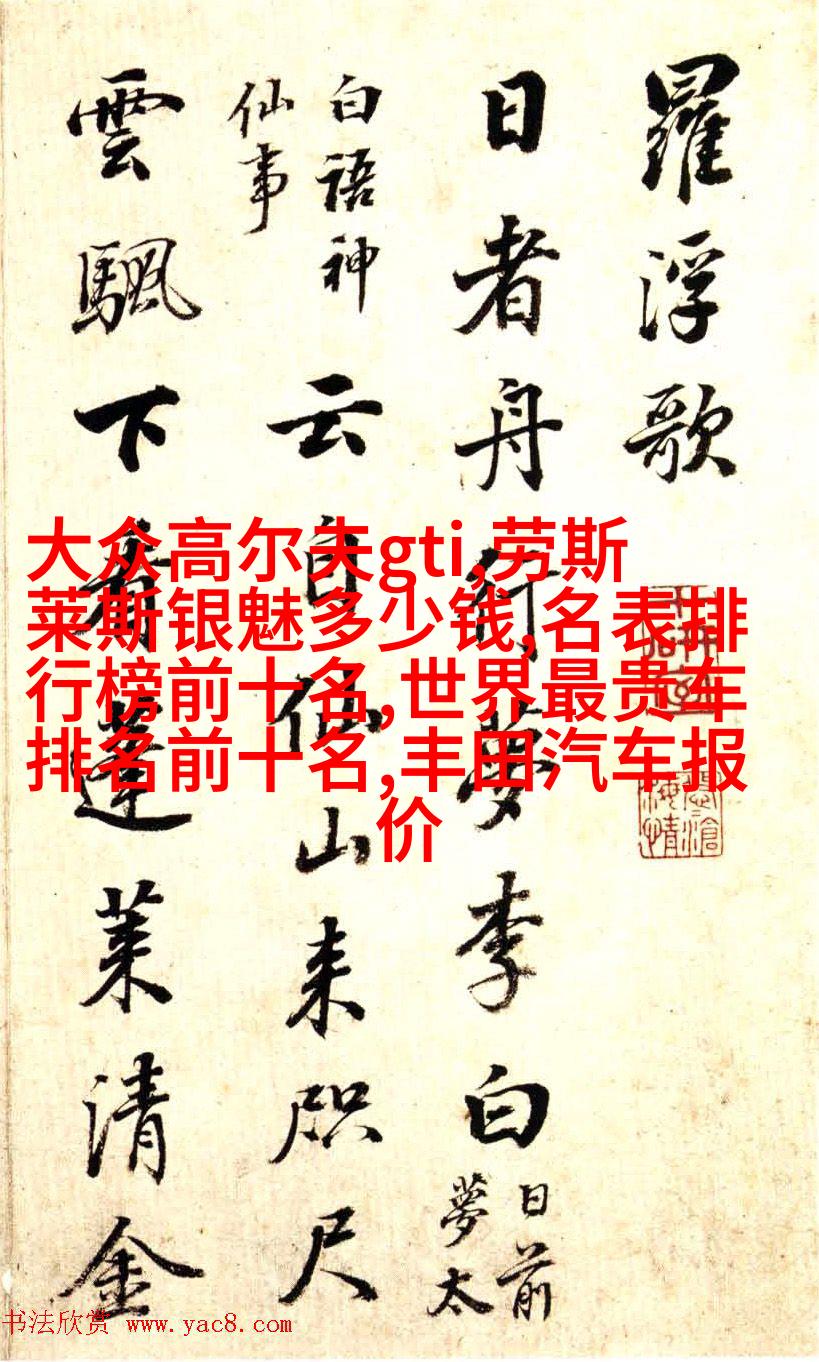 羅浮歌
日者舟行夢李白
日前
夢太
白語神
仙事
云自仙山来咫尺
雲颿下看蓬莱清金
大众高尔夫gti,劳斯
莱斯银魅多少钱,名表排
行榜前十名,世界最贵车
排名前十名,丰田汽车报
价
书法欣赏 www.yac8.com